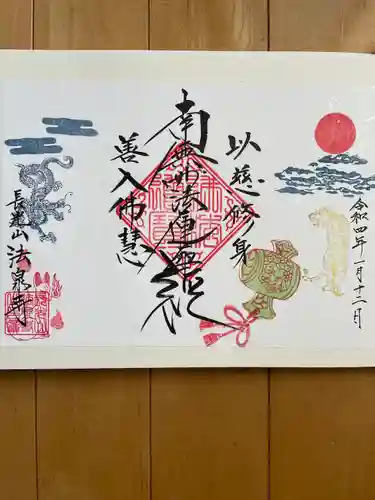 令和四年一月十二日
以慈修身
南無妙法蓮華経
善入佛慧
法泉寺